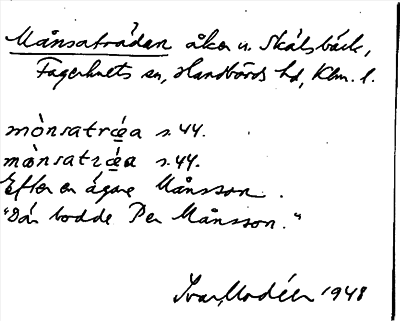 Månsaträdan åker u. Skälsbäck,
Fagerhults sn, Handbörds hd, Klm. l.
mònsatræ̀a s. 44.
mònsatræ̀a s. 44.
Efter en ägare Månsson.
"Där bodde Per Månsson."
Ivar Modéer 1948